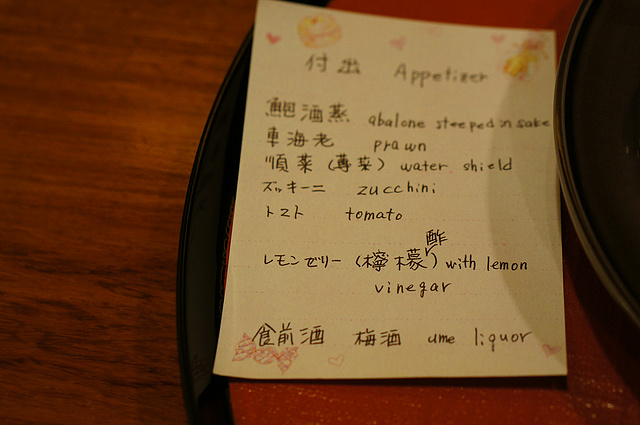 付出 Appetizer
鮑酒蒸 abalone steeped in sake
車海老 prawn
順菜（蓴菜） water shield
ズッキーニ zucchini
トマト tomato
酢
レモンゼリー（檸檬）with lemon
vinegar
食前酒 梅酒 ume liquor